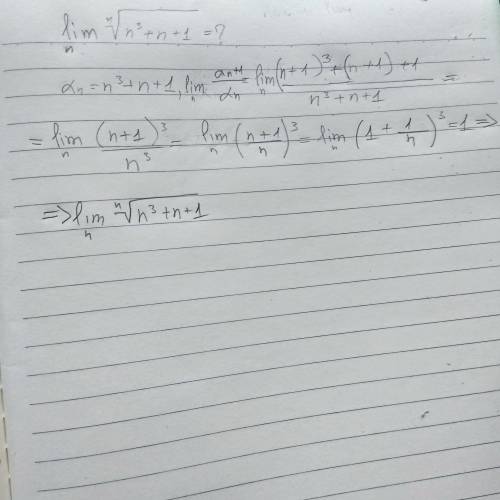 lim_n ⁿ√(n³+n+1) = ?
α_n = n³+n+1, lim_n α_{n+1}/α_n = lim_n ((n+1)³+(n+1)+1)/(n³+n+1) =
= lim_n (n+1)³/n³ = lim_n ((n+1)/n)³ = lim_n (1 + 1/n)³ = 1 =>
=> lim_n ⁿ√(n³+n+1)